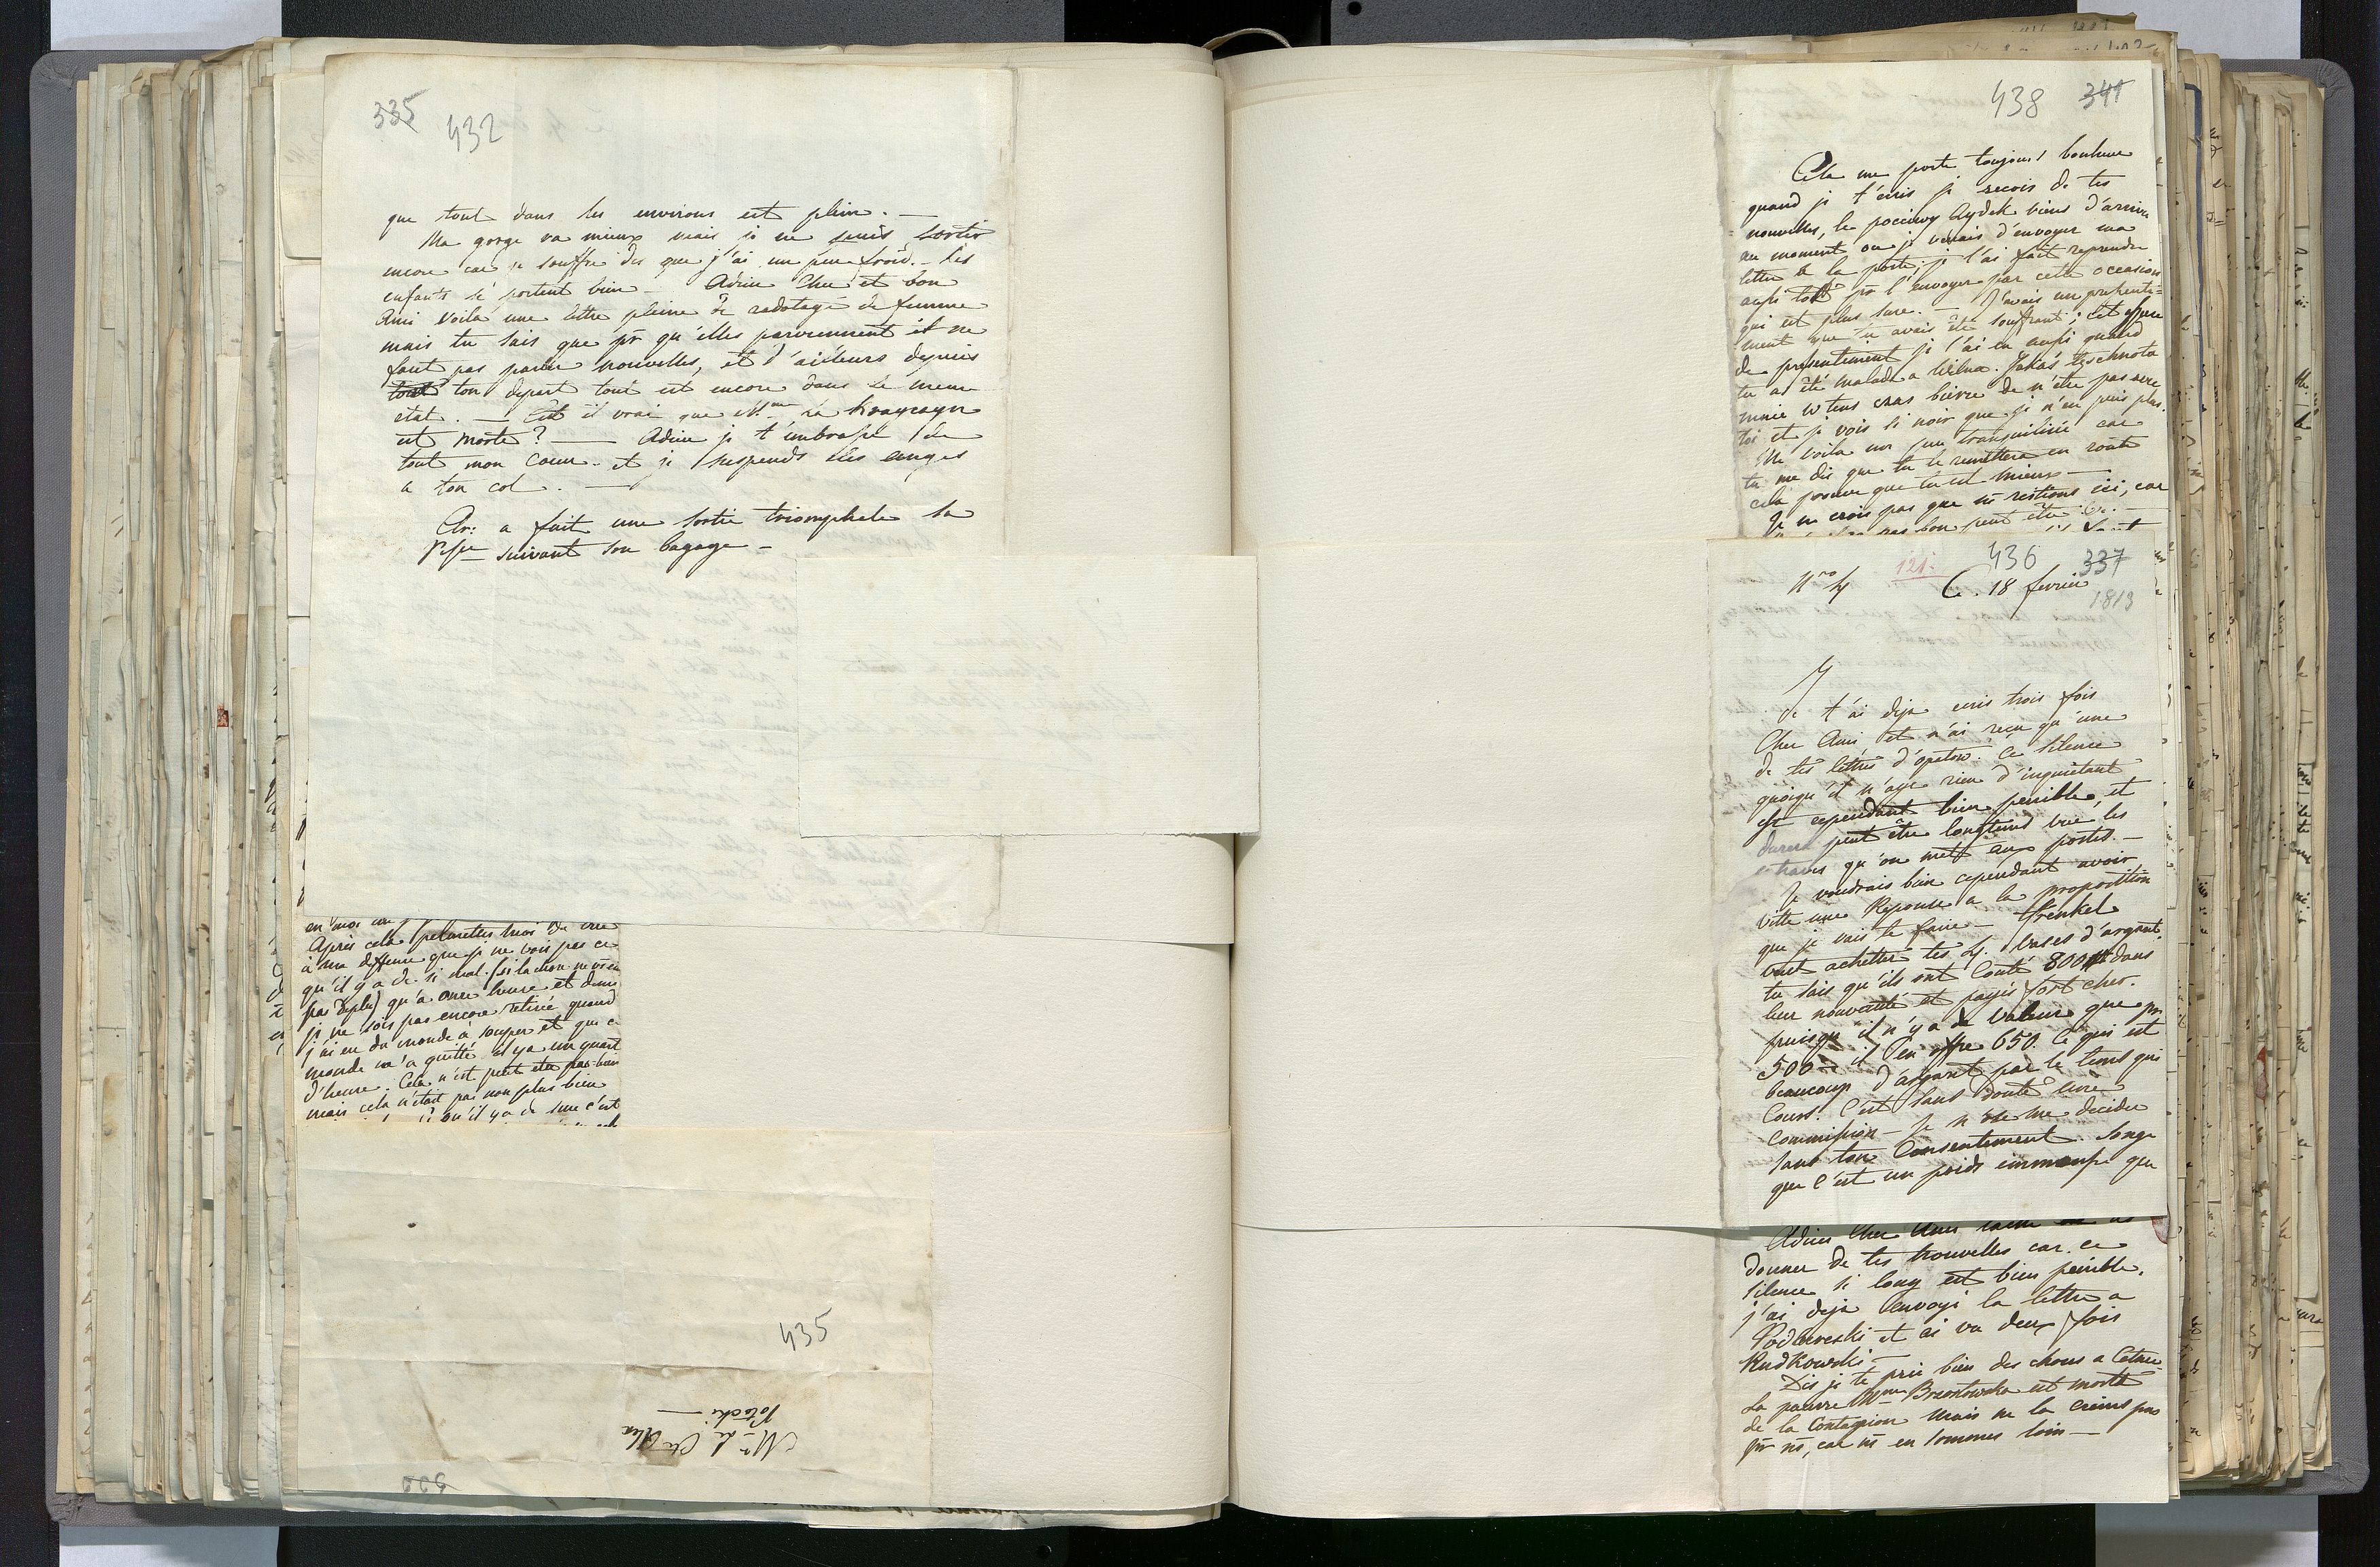 335 432
que tout dans les environs est plein. —
Ma gorge va mieux mais je ne puis sortir
encore car je souffre des que j'ai un peu froid. — Les
enfants se portent bien — Adieu Cher et bon
Ami Voila une lettre pleine de radotage de femme
mais tu sais que pr qu'elles parviennent il ne
faut pas parler nouvelles, et d'ailleurs depuis
tout ton depart tout est encore dans le meme
etat. — Est il vrai que Mme La
est morte? — Adieu je t'embrasse de
tout mon Coeur. et je suspends tes anges
a ton col. —
Ar: a fait une sortie triomphale la
suivant son bagage —
en moi
Après cela permettes moi de dire
à ma deffense que je ne vois pas ce
qu'il y a de si mal. (si la chose ne vs en
pas deplu) qu'à onze heure et demi
je ne sois pas encore retirée quand
j'ai eu du monde à souper et que ce
monde m'a quitté il y a un quart
d'heure. Cela n'est peut etre pas bien
mais cela n'etait pas non plus bien
qu'il y a de sure c'est
435
Mr Le Cte Alex
Potocki —
438 341
Cela me porte toujours bonheur
quand je t'ecris je recois de tes
nouvelles, le poczciwy Aydek viens d'arriver
au moment ou je venais d'envoyer ma
lettre a la poste; je l'ai fait reprendre
aussi tot pr l'envoyer par cette occasion
qui est plus sure. — J'avais un pressenti=
ment que tu avais été souffrant; cet espece
de pressentiment je l'ai eu aussi quand
tu as été malade a Wilna. Jakas teschnota
mnie w tens czas bierze de n'être pas avec
toi et je vois si noir que je n'en puis plus.
Me voila un peu tranquilisée car
tu me dis que tu te remettera en route
cela prouve que tu est mieux —
Je ne crois pas que ns restions ici, car
pas bon peut être
Nro 4 121. 436 337
C. 18 fevrier
1813
Je t'ai deja ecris trois fois
Cher Ami et n'ai reçu qu'une
de tes lettres d'opatow. Ce silence
quoiqu'il n'aye rien d'inquietant
est cependant bien penible, et
durera peut être longtems vue les
entraves qu'on met aux postes. —
Je voudrais bien cependant avoir
vitte une Reponse a la proposition
que je vais te faire — Frenkel
veut achetter tes 4 vases d'argent.
tu sais qu'ils ont Couté 800 dans
leur nouveauté et payés fort cher.
puisqu'il n'y a de valeur que pr
500 il t'en offre 650. Ce qui est
beaucoup d'argent par le tems qui
Cours. C'est sans doute une
Commission — Je n'ose me decider
sans ton Consentement. Songe
que c'est un poids immense que
Adieu Cher
donner de tes nouvelles car ce
silence si long est bien penible.
j'ai deja envoyé la lettre a
et ai vu deux fois
Rudkowski —
Dis je te prie bien des choses a
La pauvre Mme Brzostowska est morte
de la Contagion mais ne la crains pas
pr ns, car ns en sommes loin —